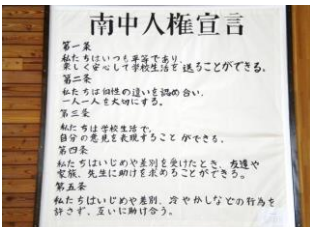 南中人権宣言
第一条
私たちはいつも平等であり、
楽しく安心して学校生活を送ることができる。
第二条
私たちは個性の違いを認め合い、
一人一人を大切にする。
第三条
私たちは学校生活で、
自分の意見を表現することができる。
第四条
私たちはいじめや差別を受けたとき、友達や
家族、先生に助けを求めることができる。
第五条
私たちはいじめや差別、冷やかしなどの行為を
許さず、互いに助け合う。